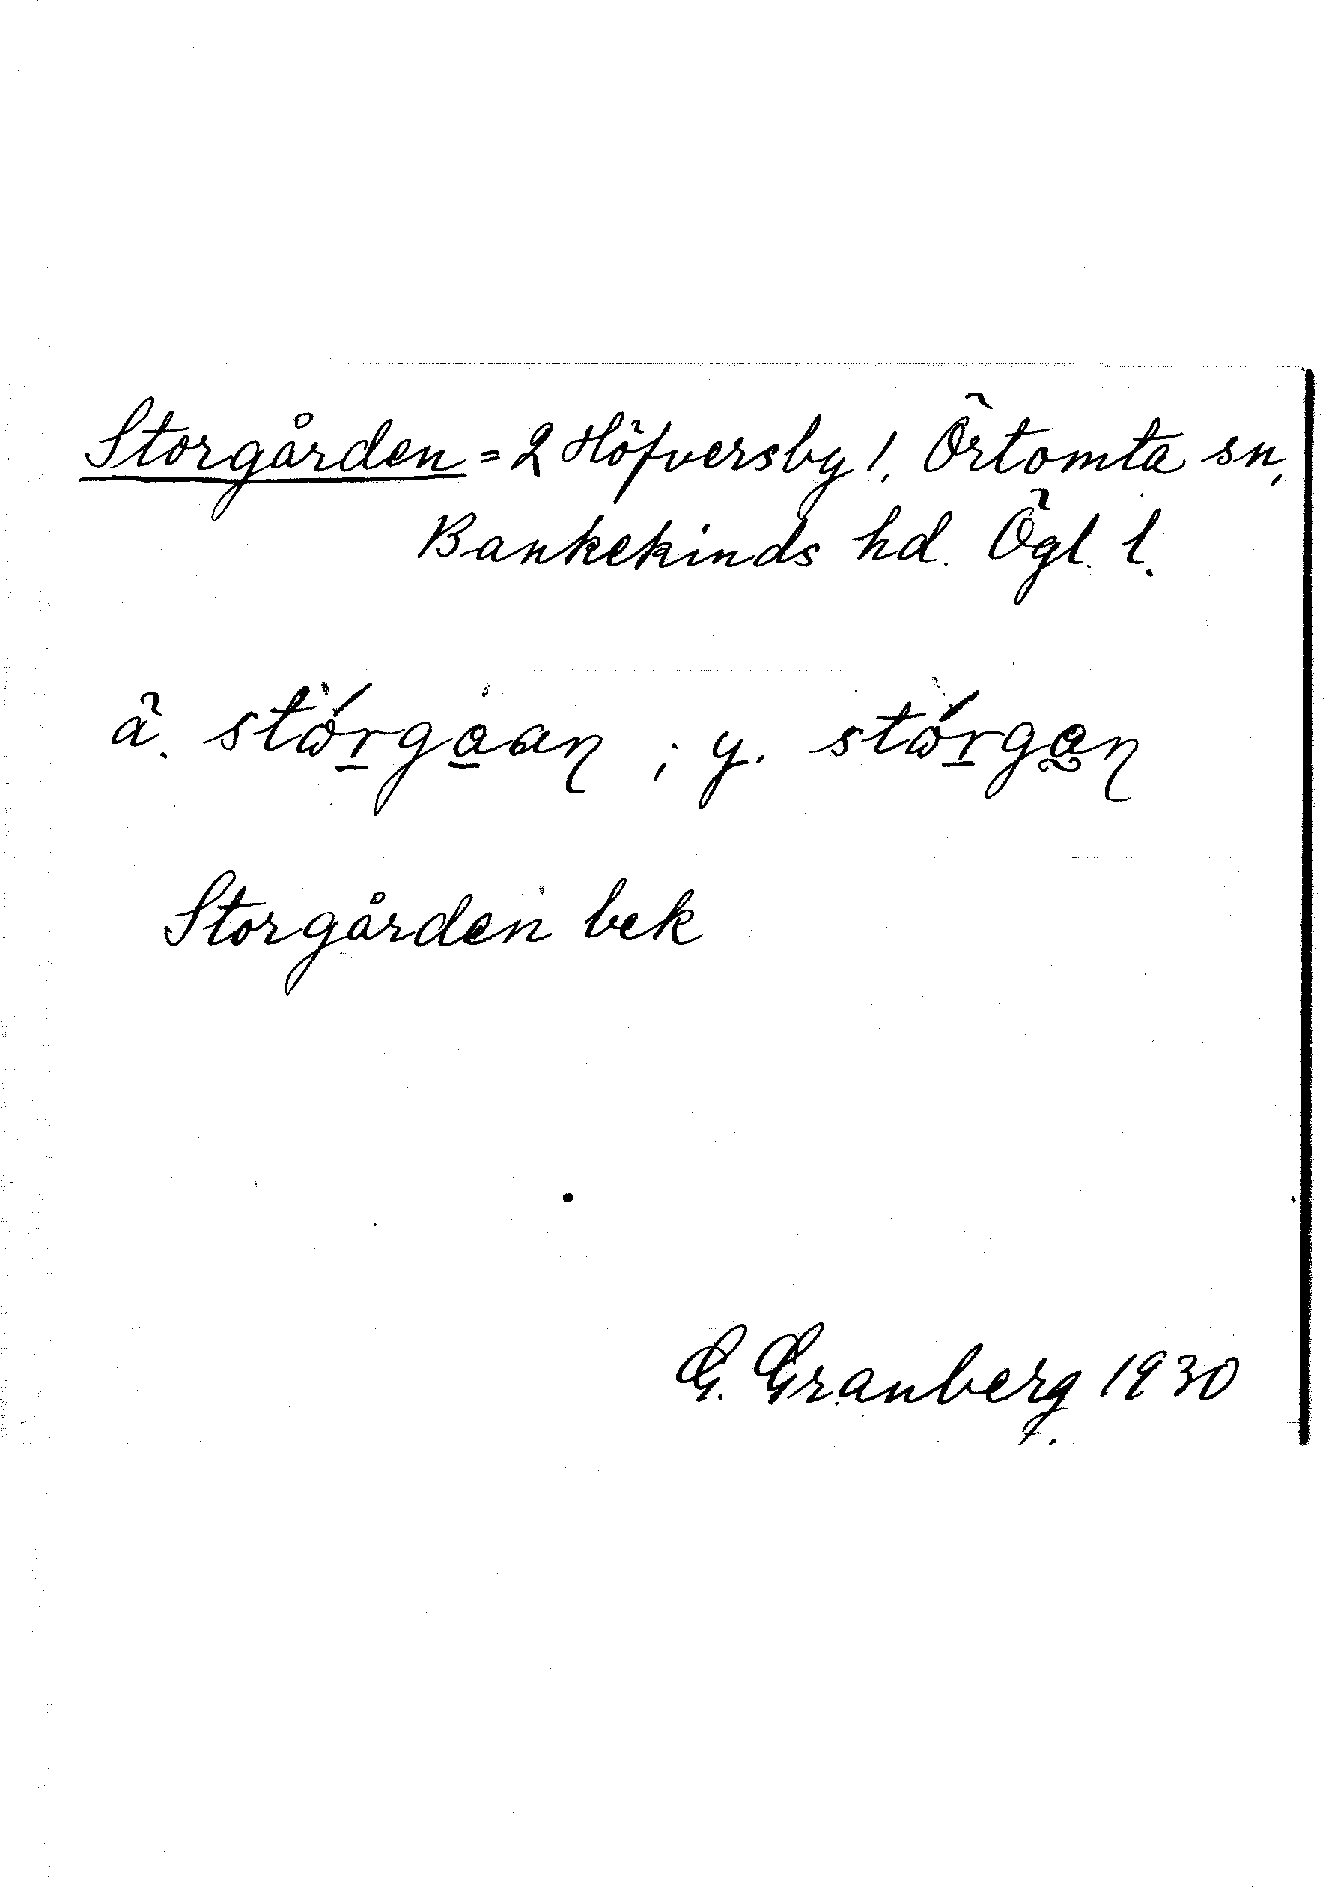 Storgården = 2 Höfversby !, Örtomta sn,
Bankekinds hd. Ögl. l.
ä. stórgaan ; y. stórgan
Storgården bek
G. Granberg 1930